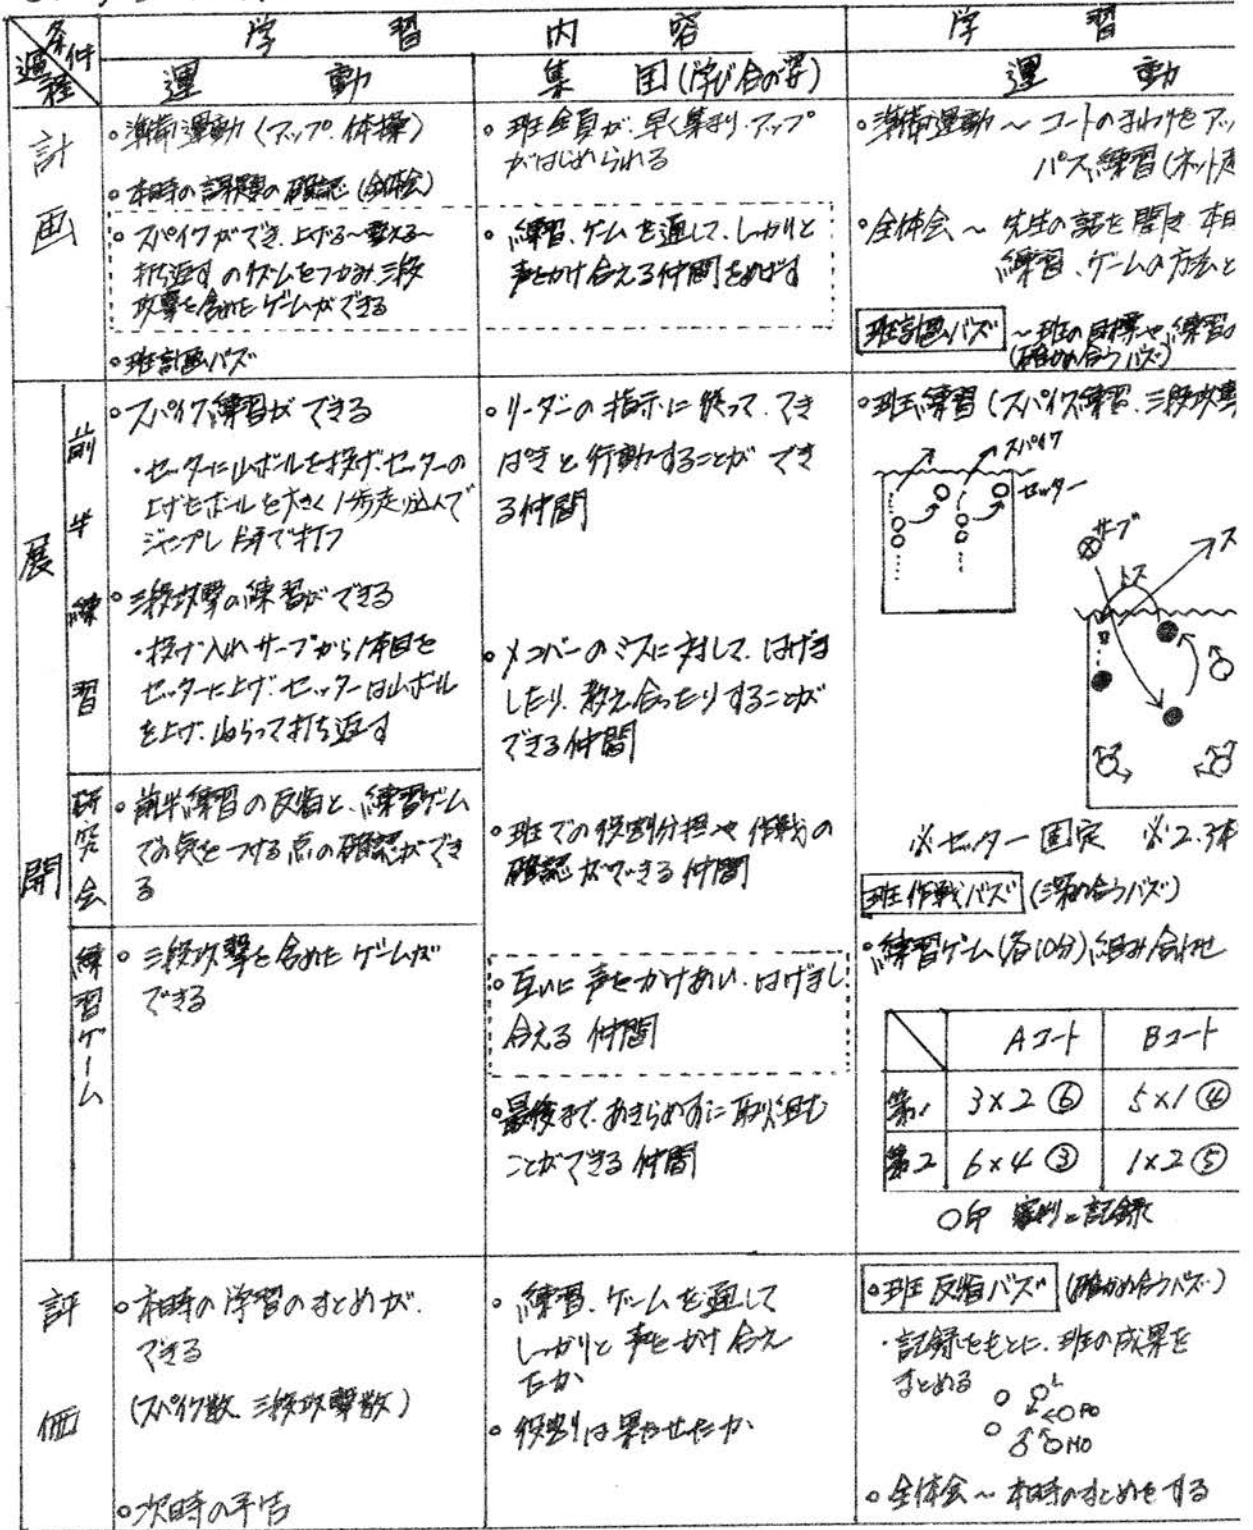 条件
過程
学習内容
学習
運動
集団(学び合の姿)
運動
計画
・準備運動(アップ.体操)
・本時の課題の確認(全体会)
・スパイクができ.上げる〜整える〜
打ち返すのリズムをつかみ.三段
攻撃を含めたゲームができる
・班計画バズ
・班全員が.早く集まり.アップ
がはじめられる
・練習、ゲームを通して、しっかりと
声をかけ合える仲間をめざす
・準備運動〜コートのまわりをアッ
パス練習(ネット
・全体会〜先生の話を聞き 本日
練習、ゲームの方法と
班計画バズ〜班の目標や練習の
(確かめ合うバズ)
展開
前半練習
・スパイク練習ができる
・セッターに山ボールを投げ.セッターの
上げたボールを大きく1歩走り込んで
ジャンプし片手で打つ
・三段攻撃の練習ができる
・投げ入れサーブから1本目を
セッターに上げ.セッターは山ボール
を上げ.ねらって打ち返す
・リーダーの指示に従って.てき
ぱきと行動することができ
る仲間
・メンバーのミスに対して.はげま
したり.教え合ったりすることが
できる仲間
・班練習(スパイク練習.三段攻撃
スパイク
セッター
サーブ
トス
ス
※セッター固定 ※2.3本
研究会
・前半練習の反省と、練習ゲーム
での気をつける点の確認ができ
る
・班での役割分担や作戦の
確認ができる仲間
班作戦バズ(深め合うバズ)
練習ゲーム
・三段攻撃を含めたゲームが
できる
・互いに声をかけあい.はげまし
合える仲間
・最後まで.あきらめずに取り組む
ことができる仲間
・練習ゲーム(各10分)組み合わせ
Aコート Bコート
第1 3×2⑥ 5×1④
第2 6×4③ 1×2⑤
○印 審判と記録
評価
・本時の学習のまとめが.
できる
(スパイク数、三段攻撃数)
・次時の予告
・練習、ゲームを通して
しっかりと声をかけ合え
たか
・役割は果たせたか
・班反省バズ(確かめ合うバズ)
・記録をもとに.班の成果を
まとめる
L
PO
MO
・全体会〜本時のまとめをする